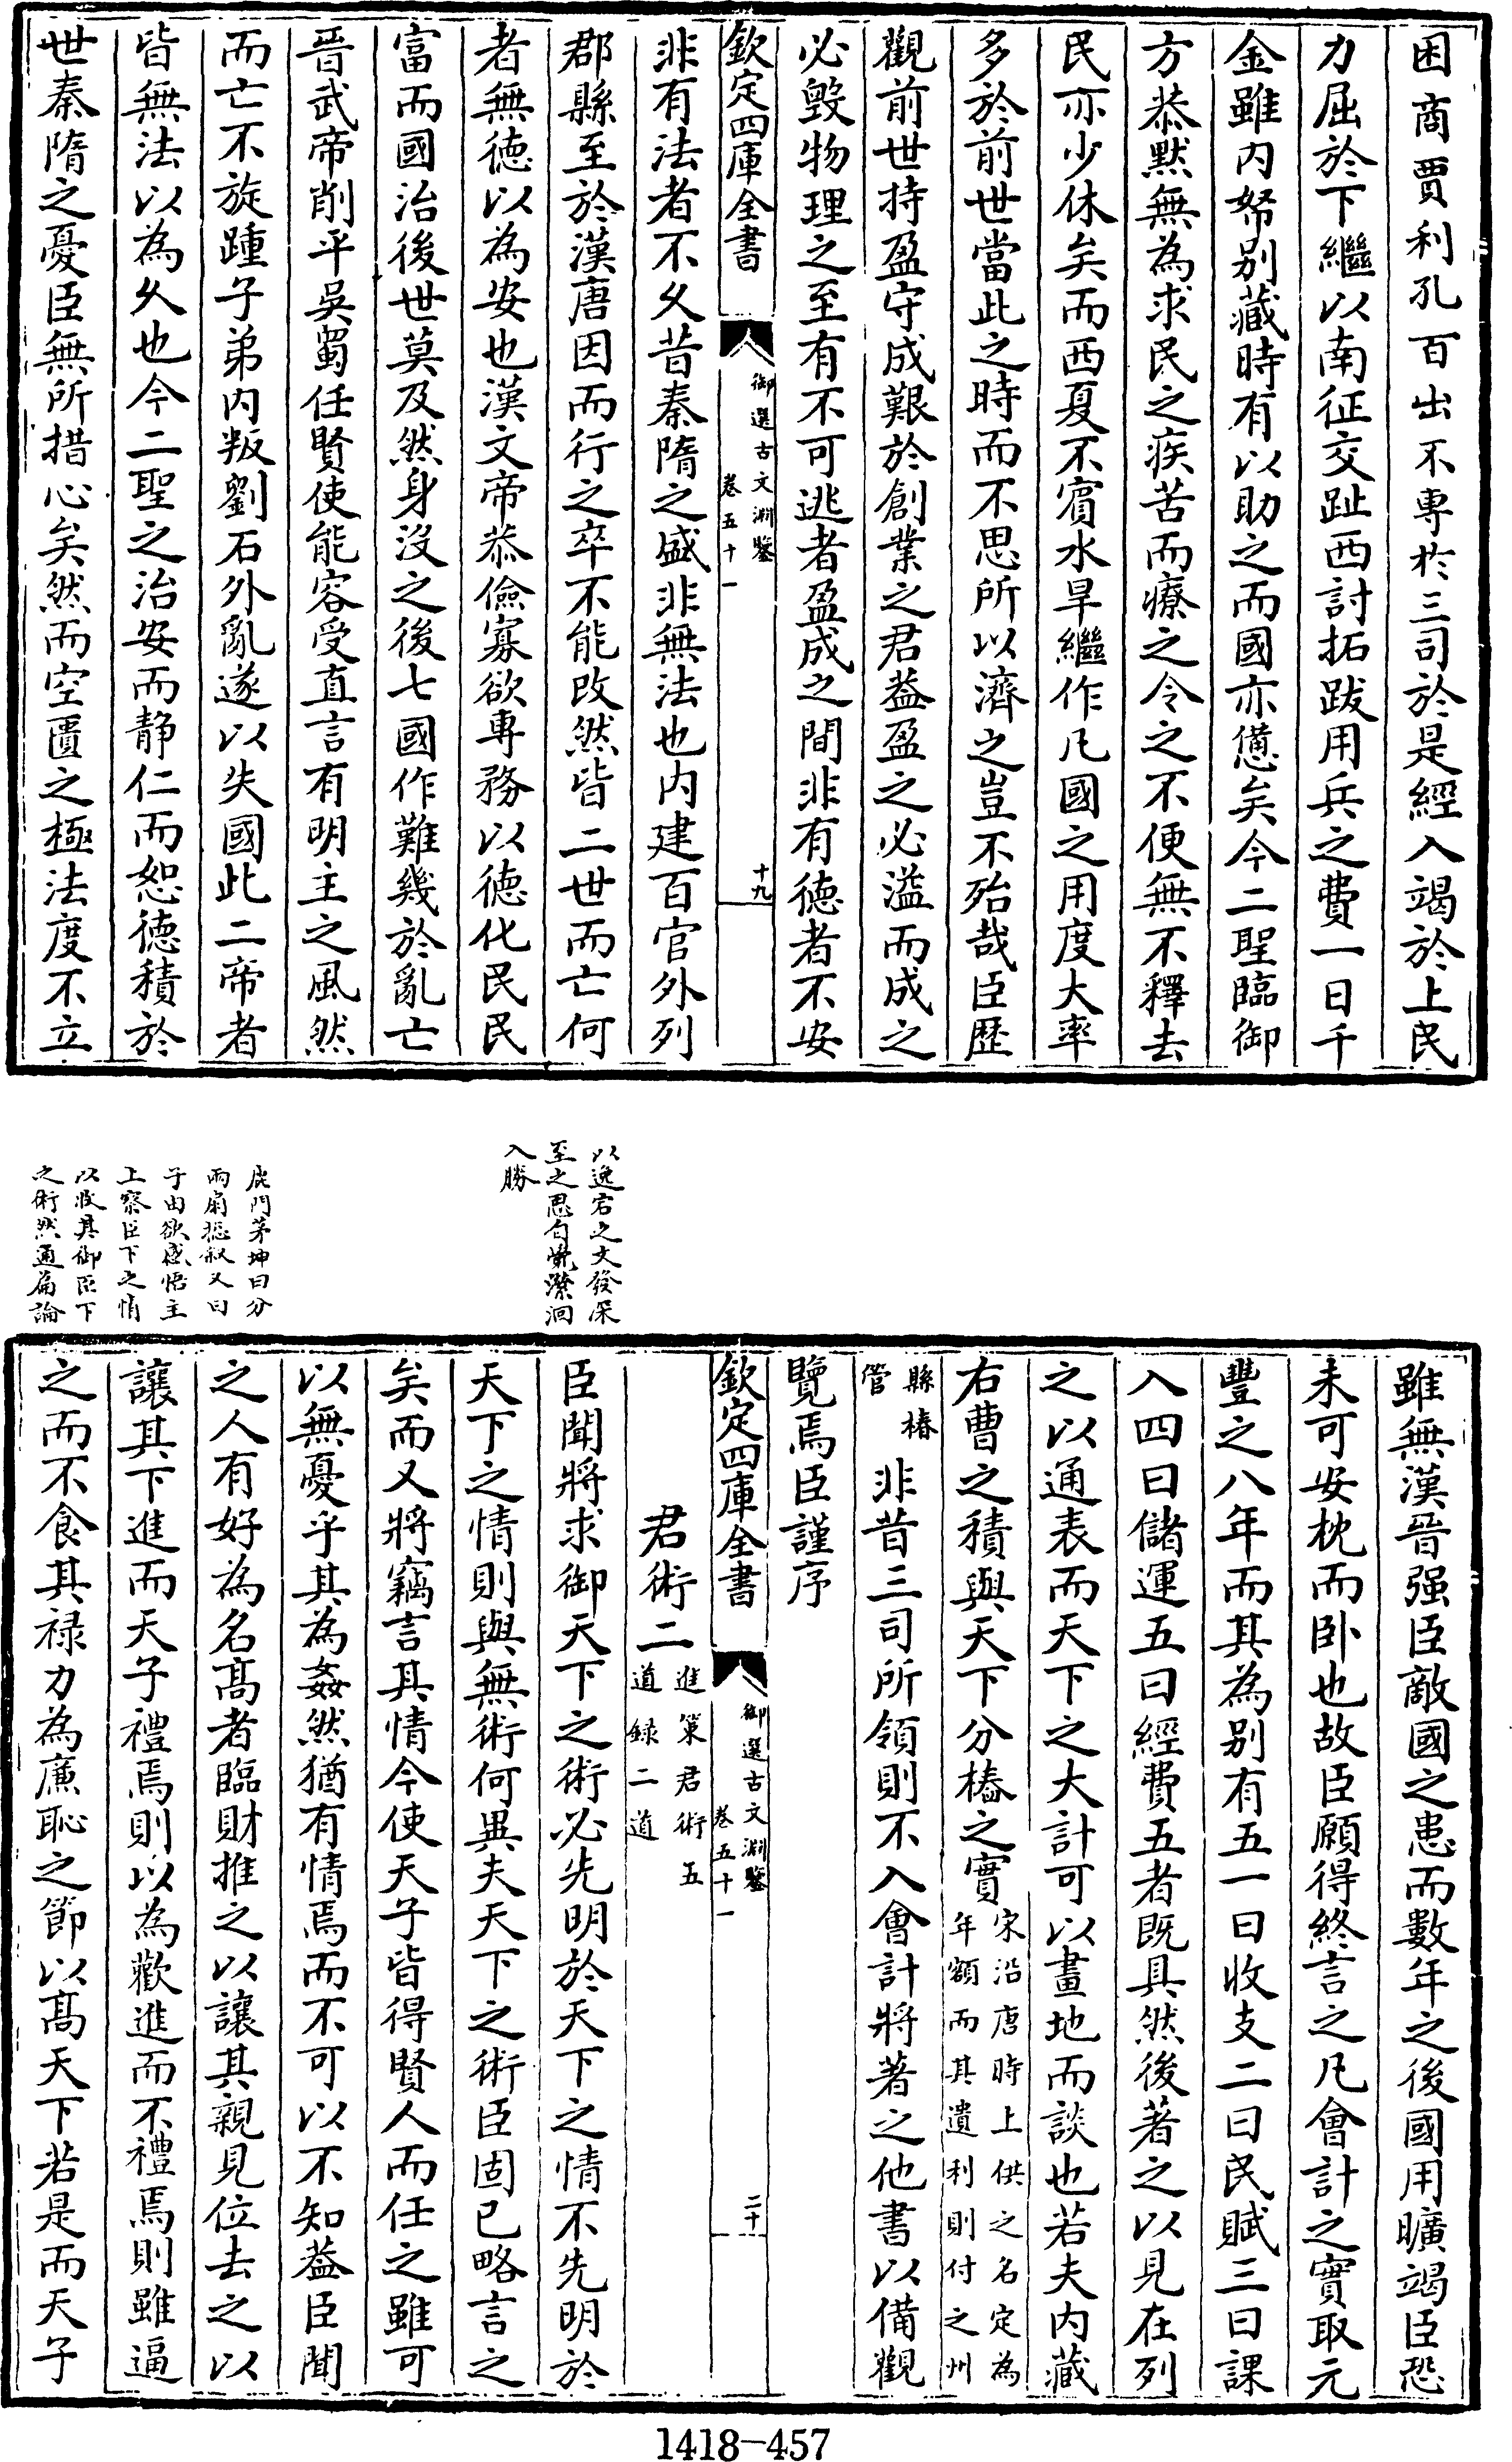 困商賈利孔百出不專於三司於是經入竭於上民
力屈於下繼以南征交趾西討拓跋用兵之費一日千
金雖内帑别藏時有以助之而國亦憊矣今二聖臨御
方恭黙無為求民之疾苦而療之令之不便無不釋去
民亦少休矣而西夏不賓水旱繼作凡國之用度大率
多於前世當此之時而不思所以濟之豈不殆哉臣歴
觀前世持盈守成艱於創業之君葢盈之必溢而成之
必毁物理之至有不可逃者盈成之間非有徳者不安
欽定四庫全書
御選古文淵鑒
卷五十一
十九
非有法者不久昔秦隋之盛非無法也内建百官外列
郡縣至於漢唐因而行之卒不能改然皆二世而亡何
者無徳以為安也漢文帝恭儉寡欲専務以徳化民民
富而國治後世莫及然身沒之後七國作難幾於亂亡
晉武帝削平吳蜀任賢使能容受直言有明主之風然
而亡不旋踵子弟内叛劉石外亂遂以失國此二帝者
皆無法以為久也今二聖之治安而静仁而恕徳積於
世秦隋之憂臣無所措心矣然而空匱之極法度不立
雖無漢晉强臣敵國之患而數年之後國用曠竭臣恐
未可安枕而卧也故臣願得終言之凡會計之實取元
豐之八年而其為别有五一曰收支二曰民賦三曰課
入四曰儲運五曰經費五者既具然後著之以見在列
之以通表而天下之大計可以畫地而談也若夫内藏
右曹之積與天下分樁之實宋沿唐時上供之名定為
年額而其遺利則付之州
縣樁
管非昔三司所領則不入會計將著之他書以備觀
覽焉臣謹序
以逸宕之文發深
至之思句覺瀠洄
入勝
欽定四庫全書
御選古文淵鑒
卷五十一
二十
君術二進策君術五
道録二道
臣聞將求御天下之術必先明於天下之情不先明於
天下之情則與無術何異夫天下之術臣固已略言之
矣而又將竊言其情今使天子皆得賢人而任之雖可
以無憂乎其為姦然猶有情焉而不可以不知葢臣聞
之人有好為名髙者臨財推之以讓其親見位去之以
讓其下進而天子禮焉則以為歡進而不禮焉則雖逼
之而不食其禄力為廉恥之節以髙天下若是而天子
鹿門茅坤曰分
兩扇總叙又曰
子由欲感悟主
上察臣下之情
以收其御臣下
之術然通篇論
1418-457